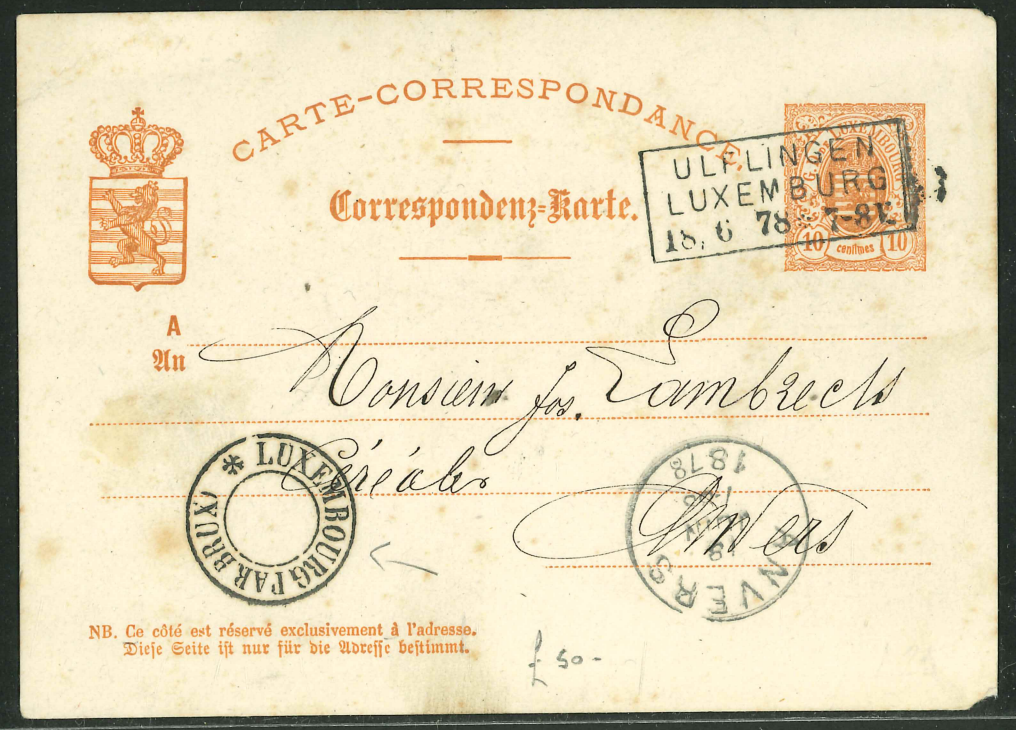 CARTE-CORRESPONDANCE.
Correspondenz-Karte.
ULFLINGEN
LUXEMBURG
18. 6 78 7-8V.
LUXEMBOURG
10 centimes 10
A
An
Monsieur Jos. Lambrechts
Céréales
Anvers
* LUXEMBOURG PAR BRUX(
ANVERS
JUIN
1878
NB. Ce côté est réservé exclusivement à l'adresse.
Diese Seite ist nur für die Adresse bestimmt.
£ 50-